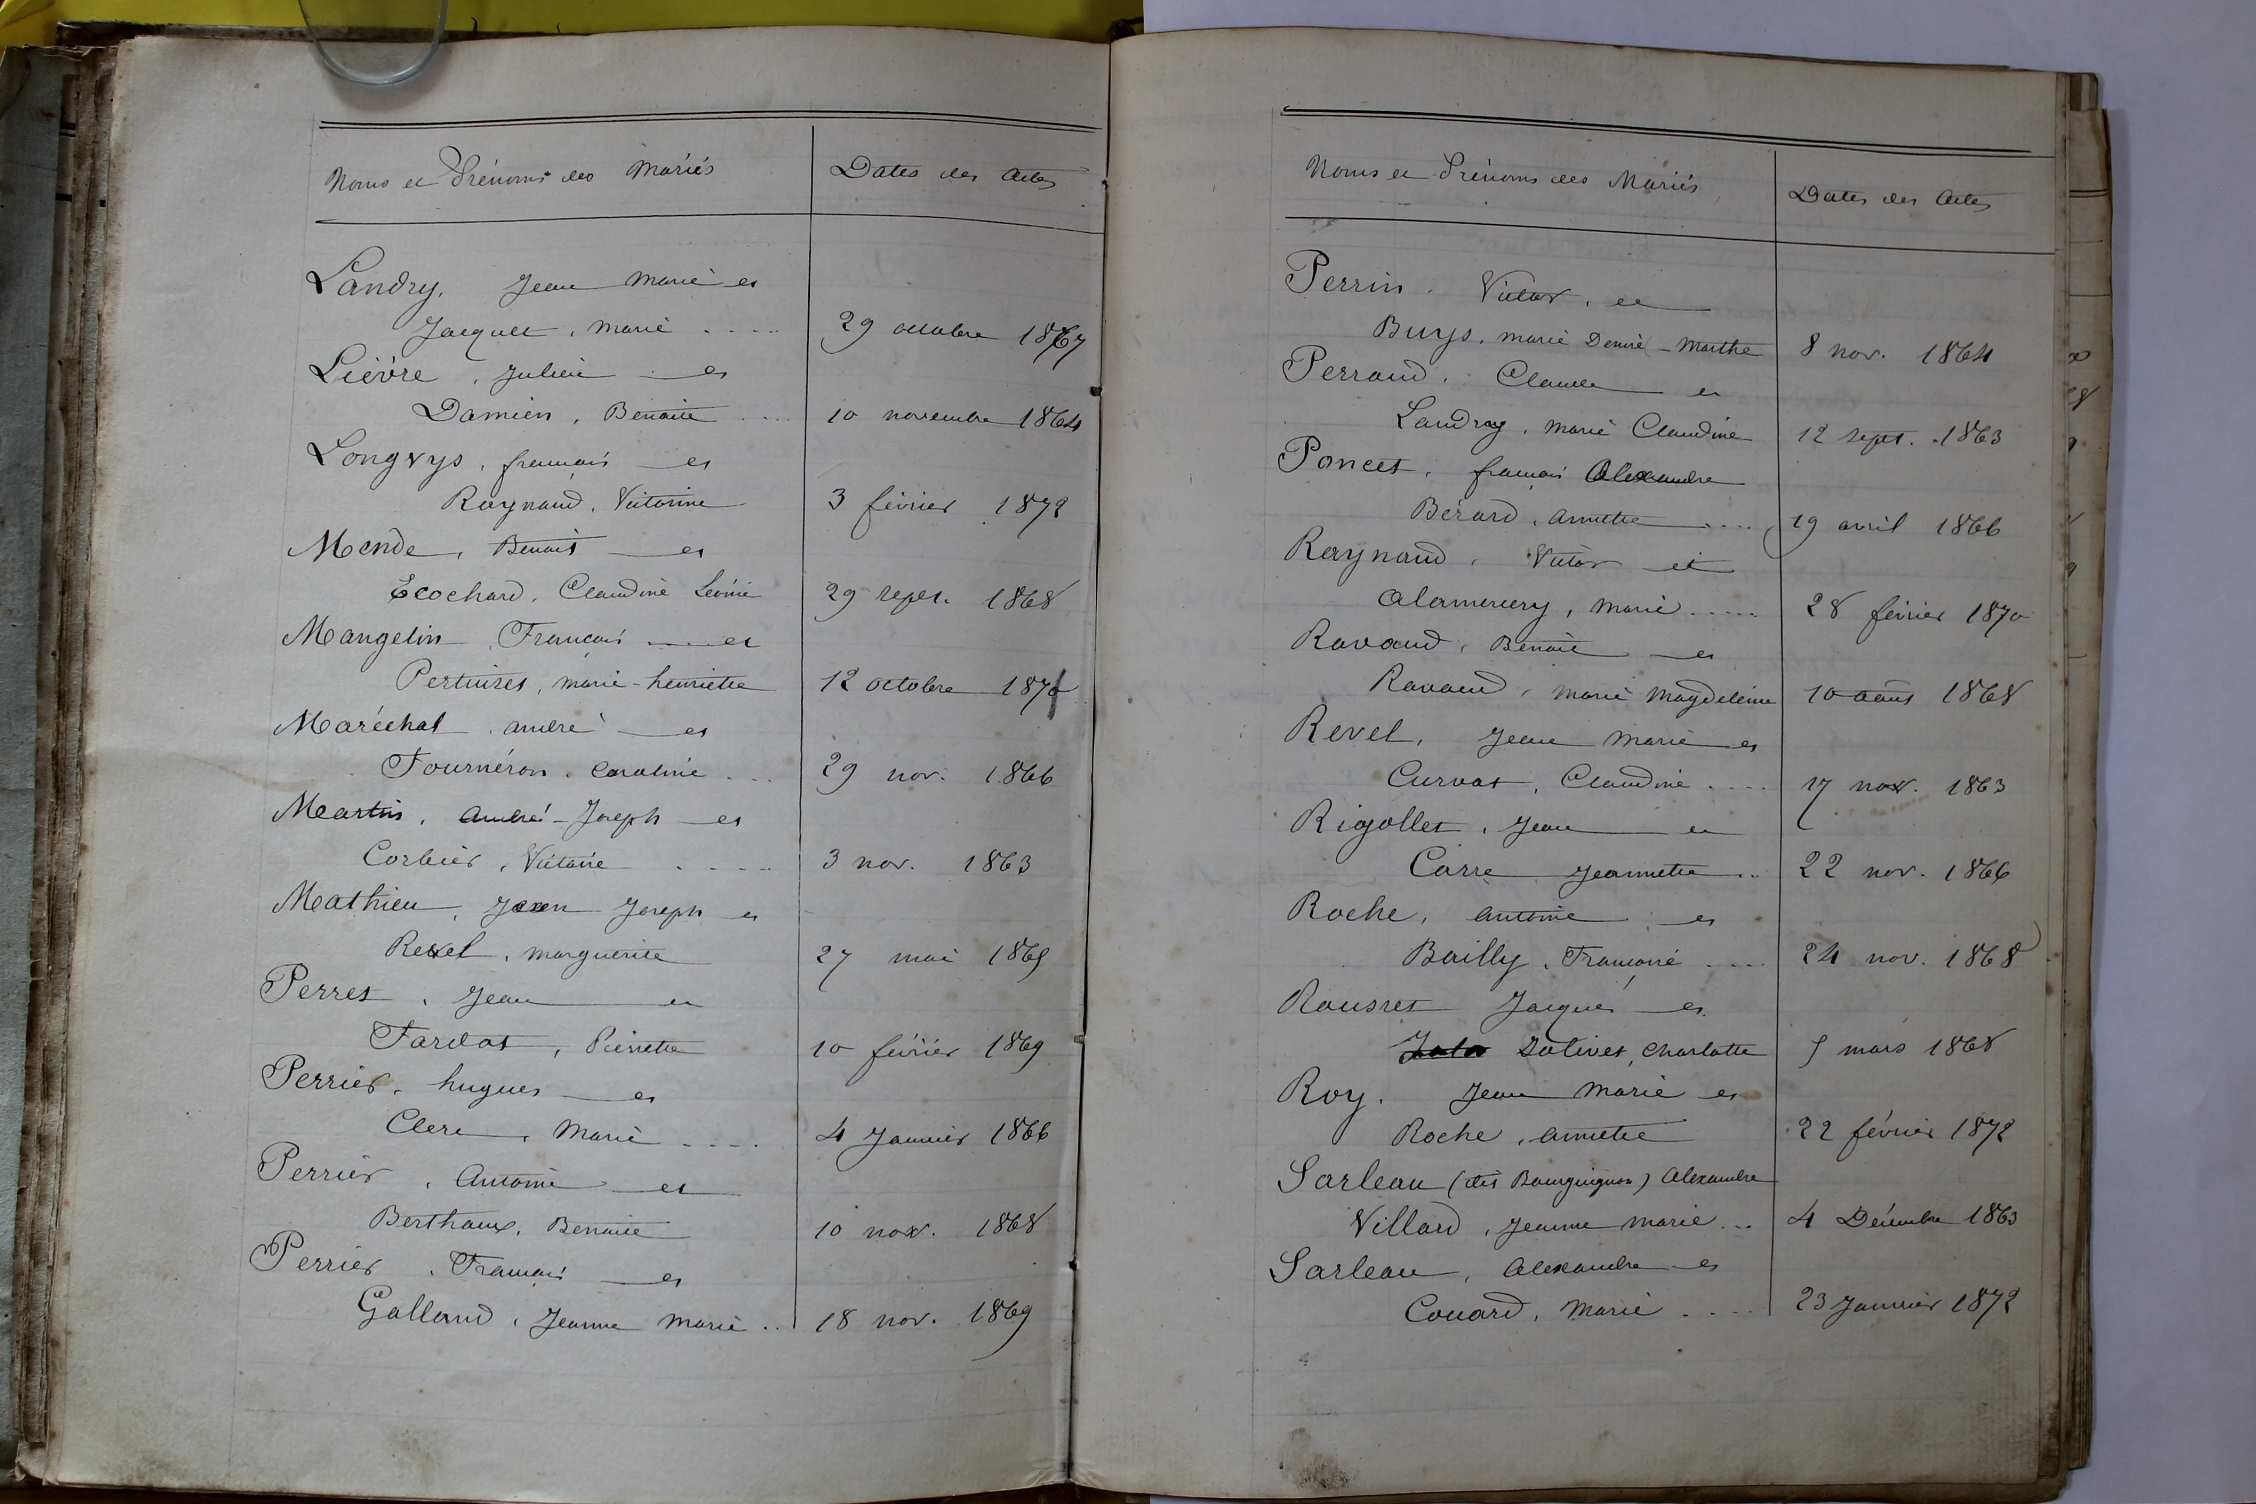 Noms et Prénoms des Mariés
Dates des Actes
Landry, Jean Marie et
Jacquet, Marie .... 29 octobre 1867
Lièvre, Julien et
Damien, Benoite .... 10 novembre 1864
Longvys, françois et
Raynaud, Victorine 3 février 1872
Mende, Benoit et
Ecochard, Claudine Léonie 29 sept. 1868
Mangelin, François et
Pertuizet, Marie-henriette 12 octobre 1871
Maréchal, André et
Fournéron, Caroline ... 29 nov. 1866
Martin, André-Joseph et
Corbier, Victoire .... 3 nov. 1863
Mathieu, Jean Joseph et
Revel, Marguerite 27 mai 1869
Perret, Jean et
Fardot, Pierrette 10 février 1869
Perrier, hugues et
Clerc, Marie .... 4 Janvier 1866
Perrier, Antoine et
Berthaux, Benoite 10 nov. 1868
Perrier, François et
Galland, Jeanne Marie .. 18 nov. 1869
Noms et Prénoms des Mariés
Dates des Actes
Perrin, Victor, et
Buys, Marie Denise-Marthe 8 nov. 1864
Perraud, Claude et
Landry, Marie Claudine 12 sept. 1863
Poncet, françois Alexandre
Bérard, Annette .... 19 avril 1866
Raynaud, Victor et
Alamercery, Marie .... 28 février 1870
Ravaud, Benoit et
Ravaud, Marie Magdeleine 10 août 1868
Revel, Jean Marie et
Curvat, Claudine .... 17 nov. 1863
Rigollet, Jean et
Carre Jeannette .. 22 nov. 1866
Roche, Antoine et
Bailly, Françoise .... 24 nov. 1868
Rousset Jacques et
Dolivet, Charlotte 5 mars 1868
Roy, Jean Marie et
Roche, Annette 22 février 1872
Sarleau (dit Bourguignon) Alexandre
Villard, Jeanne Marie ... 4 Décembre 1863
Sarleau, Alexandre et
Couard, Marie .... 23 Janvier 1872